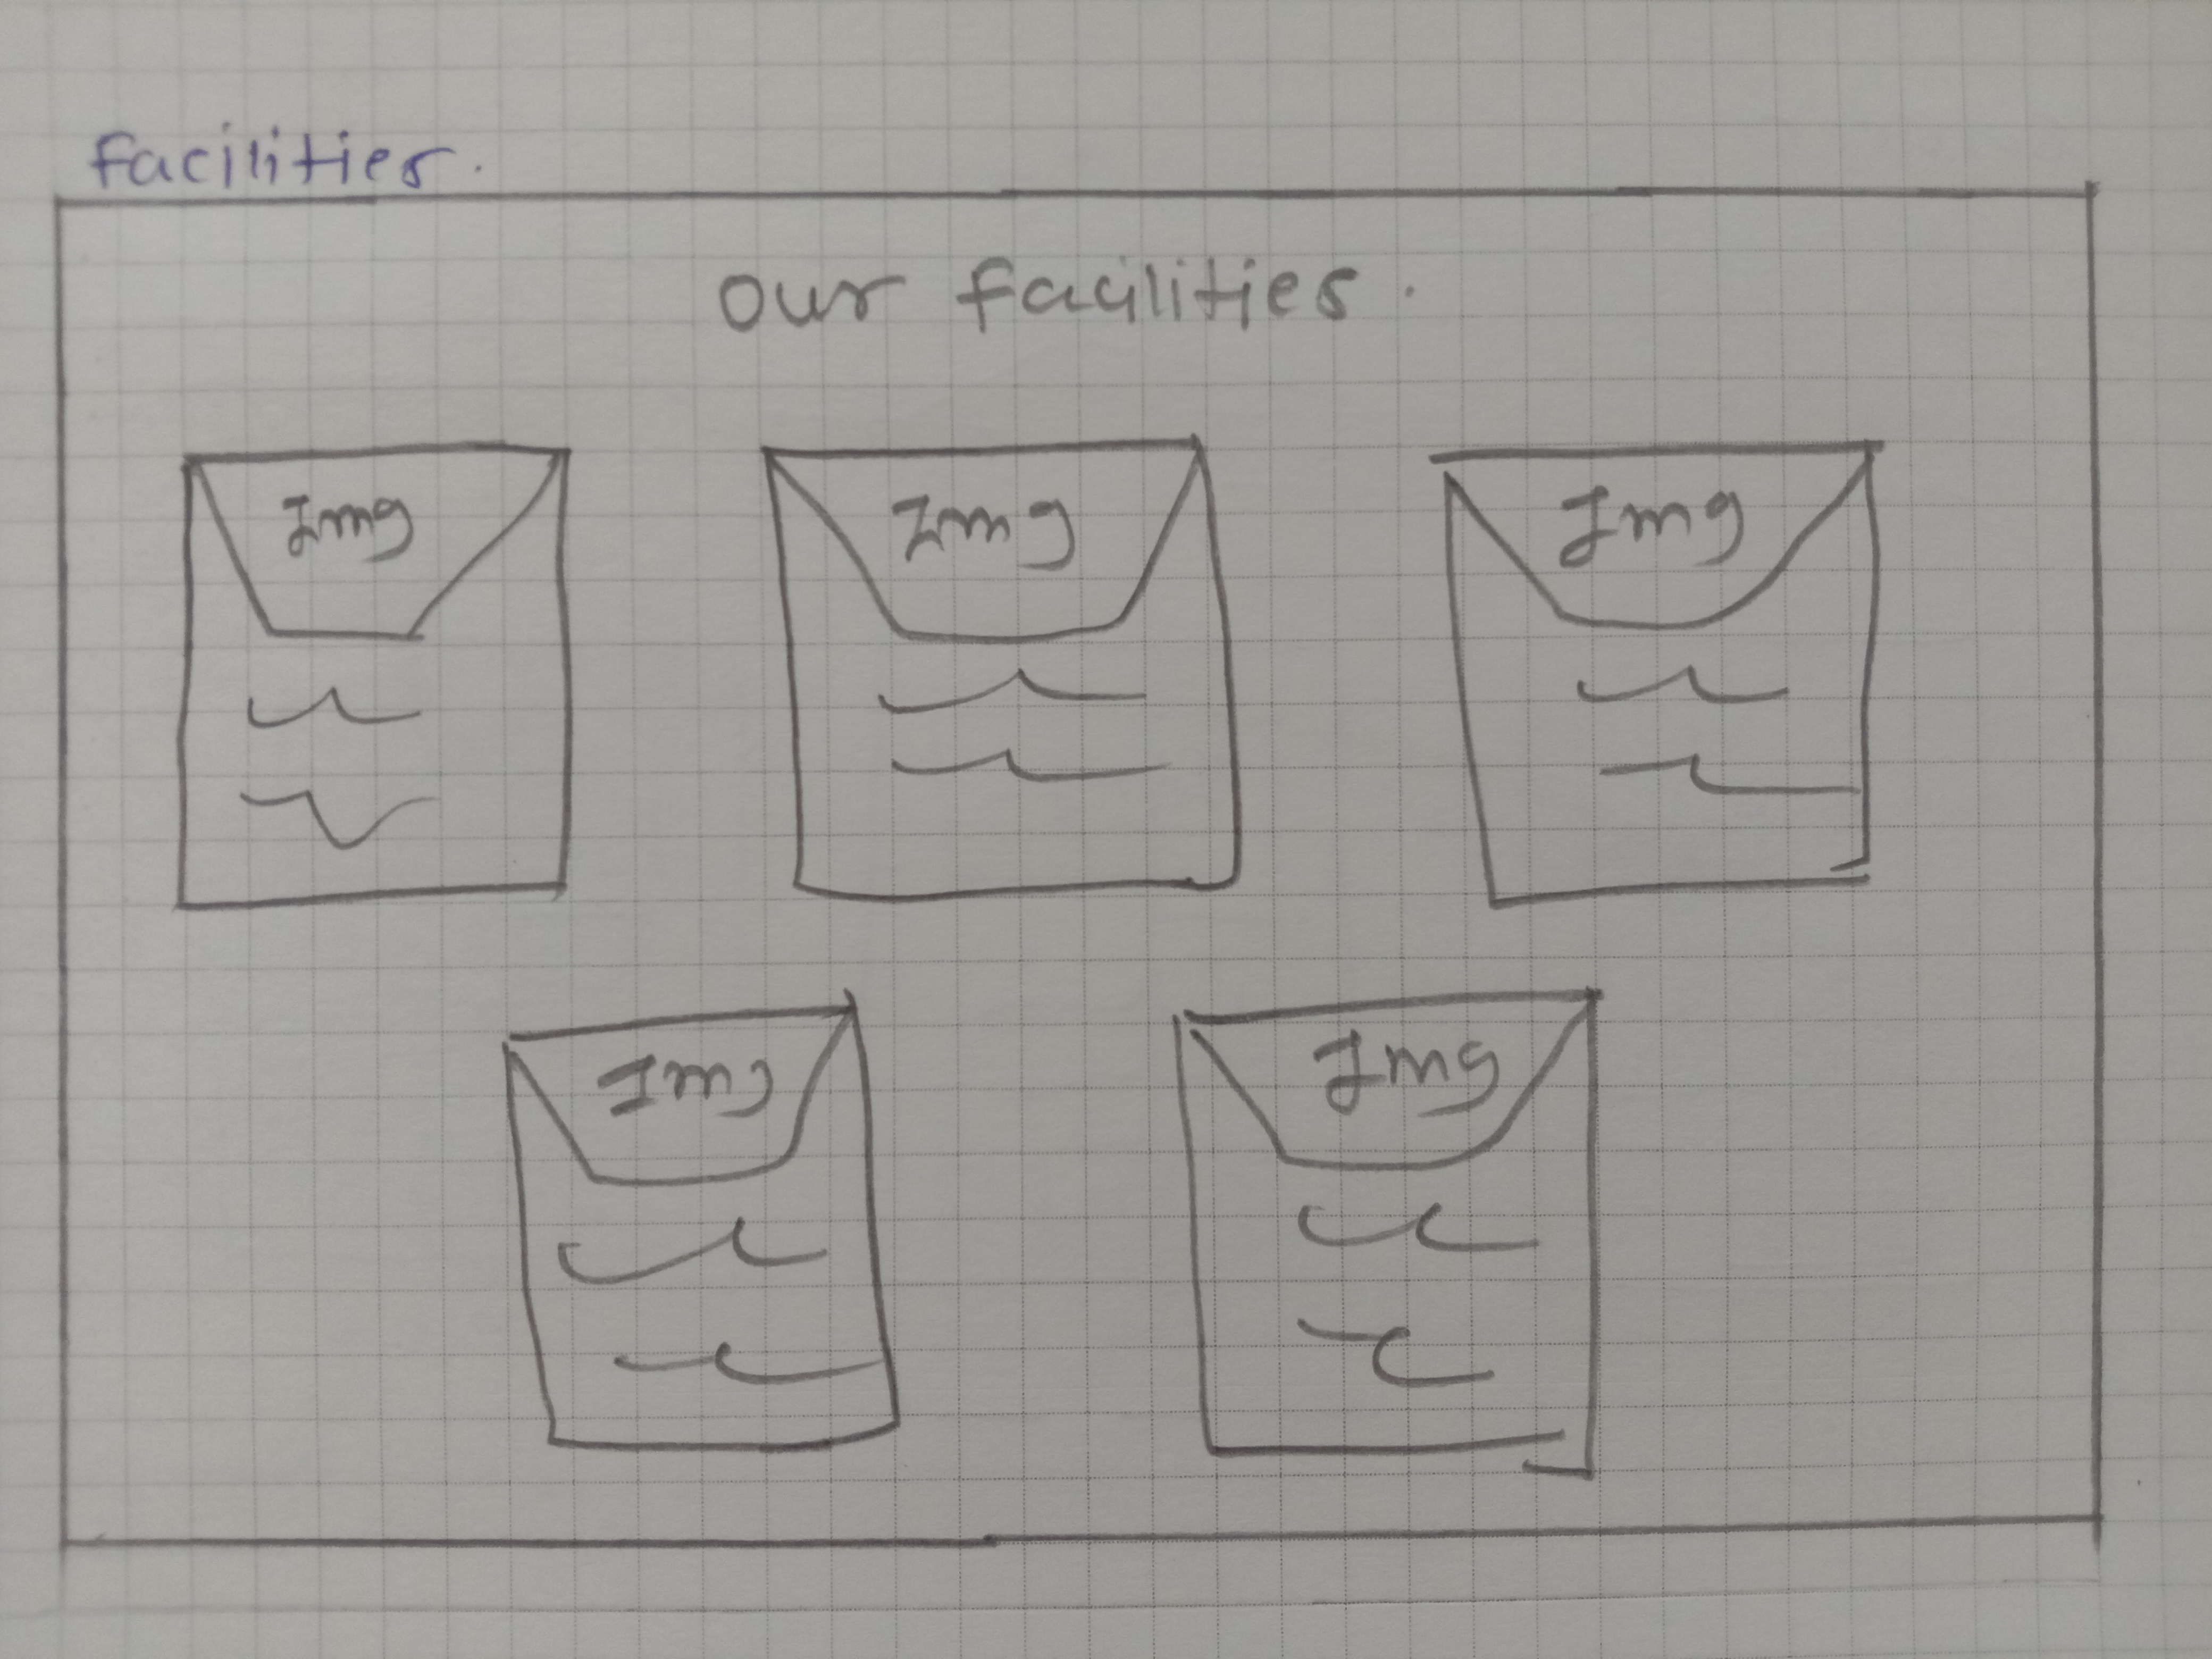 facilities.
our facilities.
Img
Img
Img
Img
Img